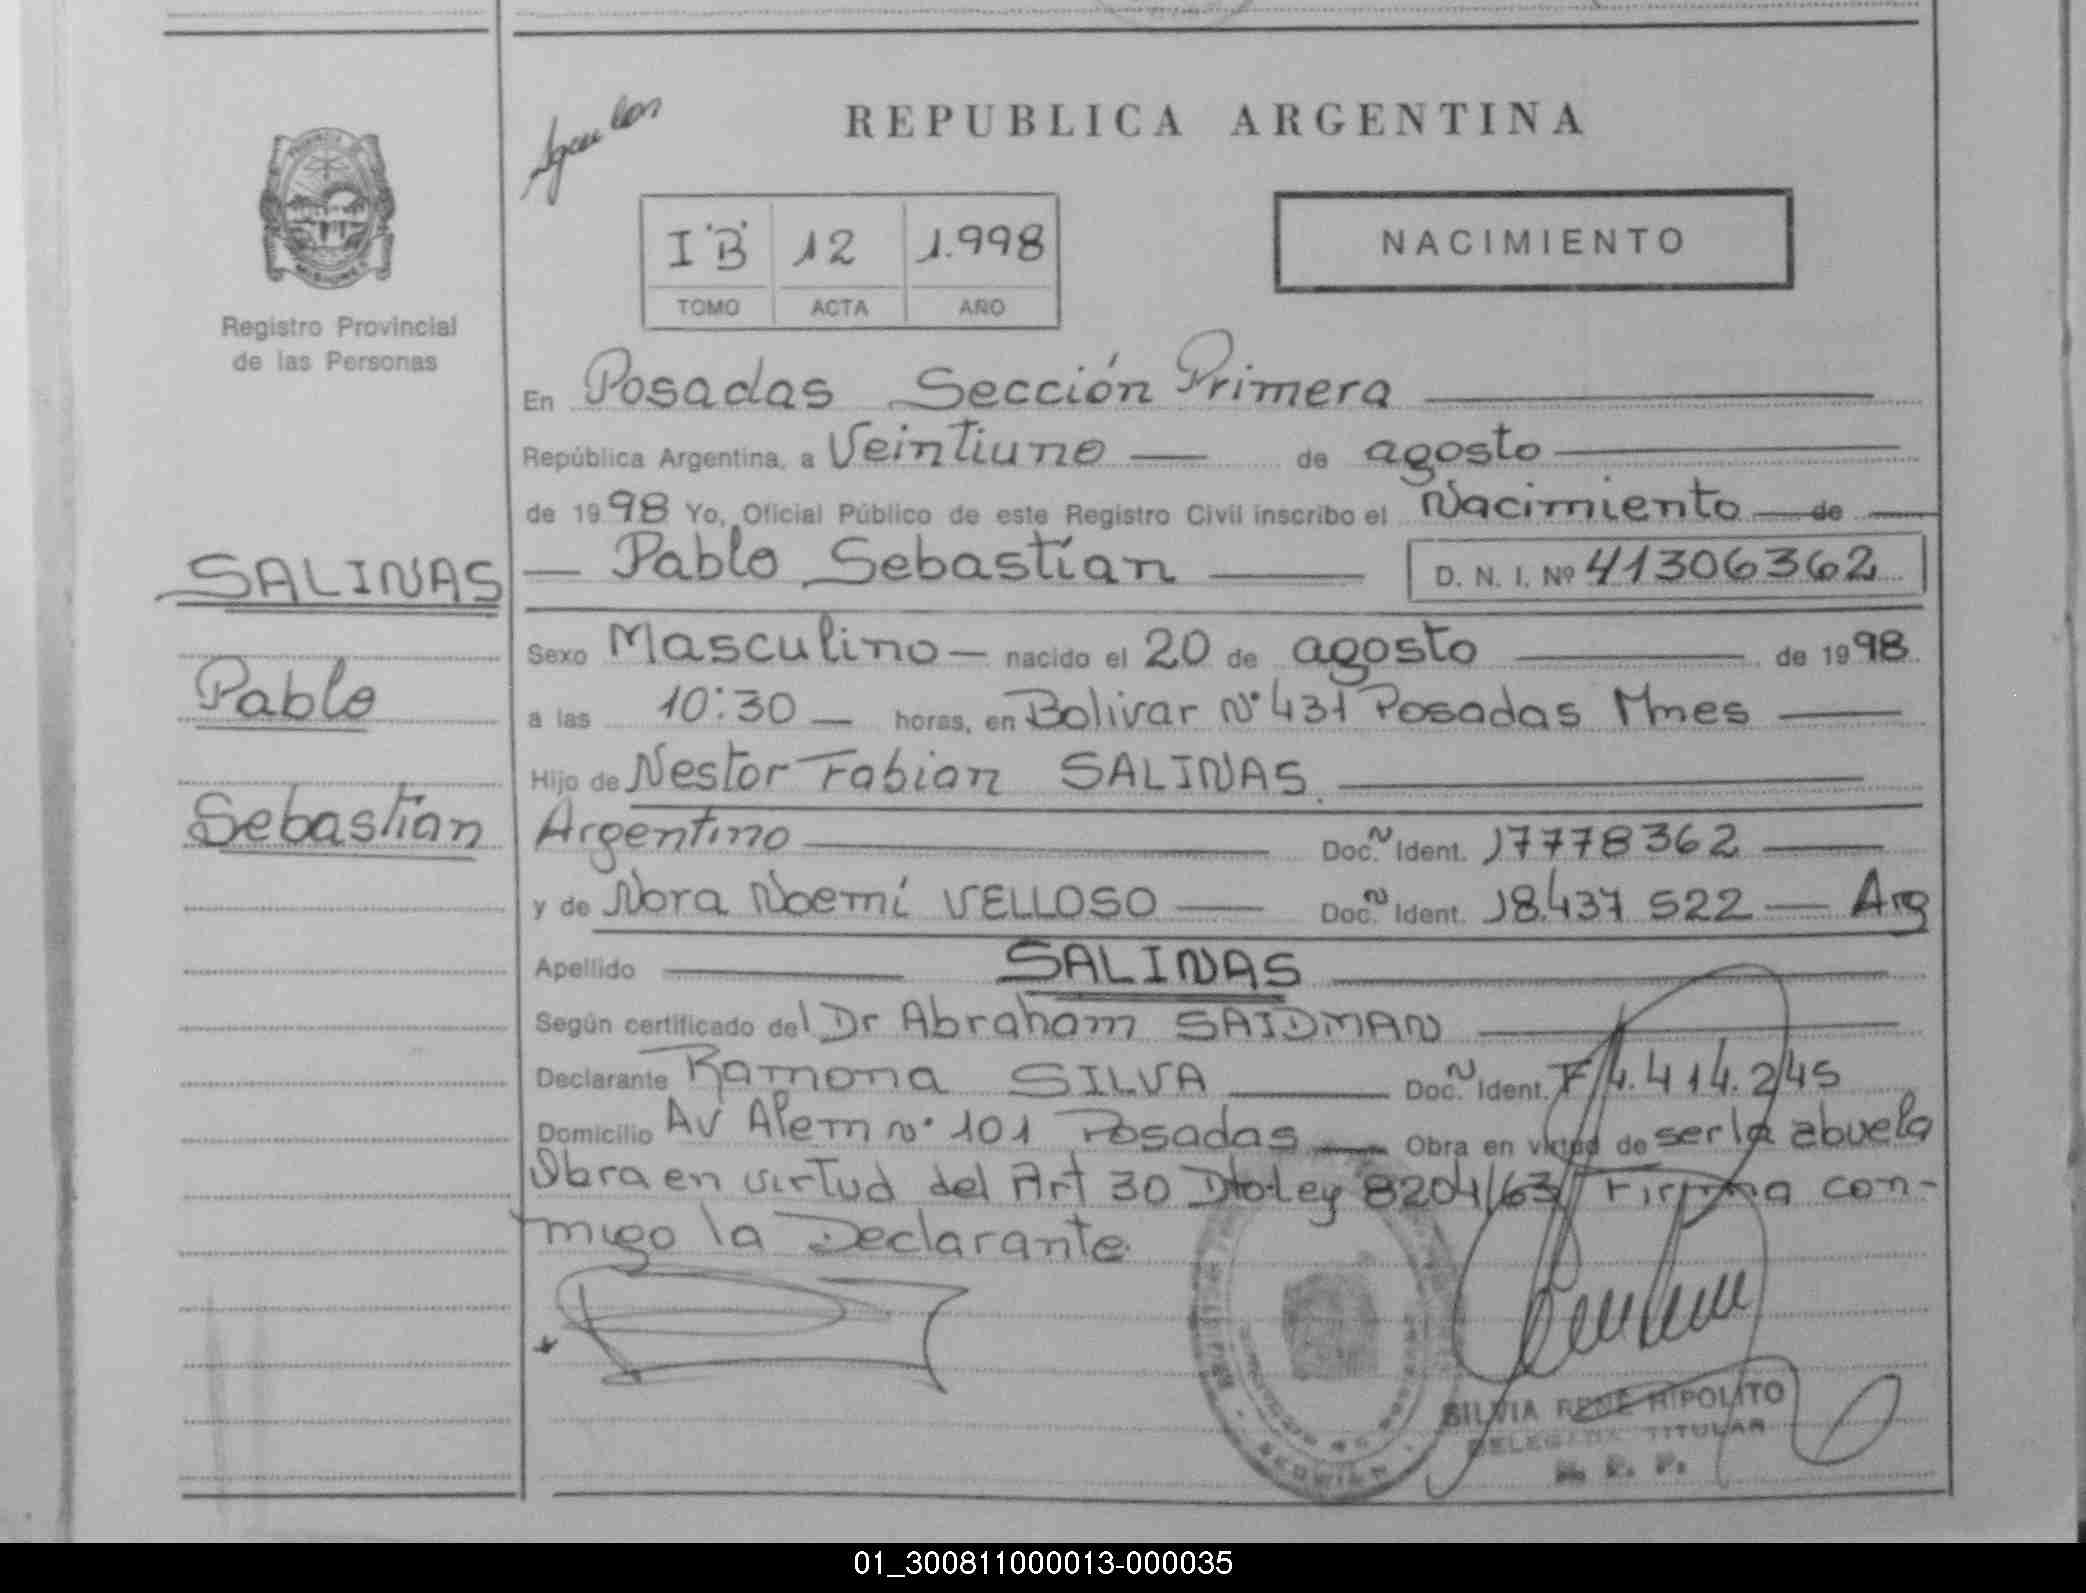 REPUBLICA ARGENTINA
I "B" 12 1.998
TOMO ACTA AÑO
NACIMIENTO
Registro Provincial
de las Personas
En Posadas Sección Primera
República Argentina, a Veintiuno de agosto
de 1998 Yo, Oficial Público de este Registro Civil inscribo el Nacimiento de
Pablo Sebastían D. N. I. Nº 41306362
SALINAS
Pablo
Sebastían
Sexo Masculino nacido el 20 de agosto de 1998
a las 10:30 horas, en Bolivar Nº 431 Posadas Mnes
Hijo de Nestor Fabian SALINAS.
Argentino Doc. Ident. 17778362
y de Nora Noemí VELLOSO Doc. Ident. 18.437 522 Arg
Apellido SALINAS
Según certificado del Dr Abraham SAIDMAN
Declarante Ramona SILVA Doc. Ident. F 4.414.245
Domicilio Av Alem nº 101 Posadas Obra en virtud de ser la abuela
Obra en virtud del Art 30 Dto-Ley 8204/63 Firma con-
migo la Declarante
SILVIA RENE HIPOLITO
DELEGADA TITULAR
R. P. P.
01_300811000013-000035